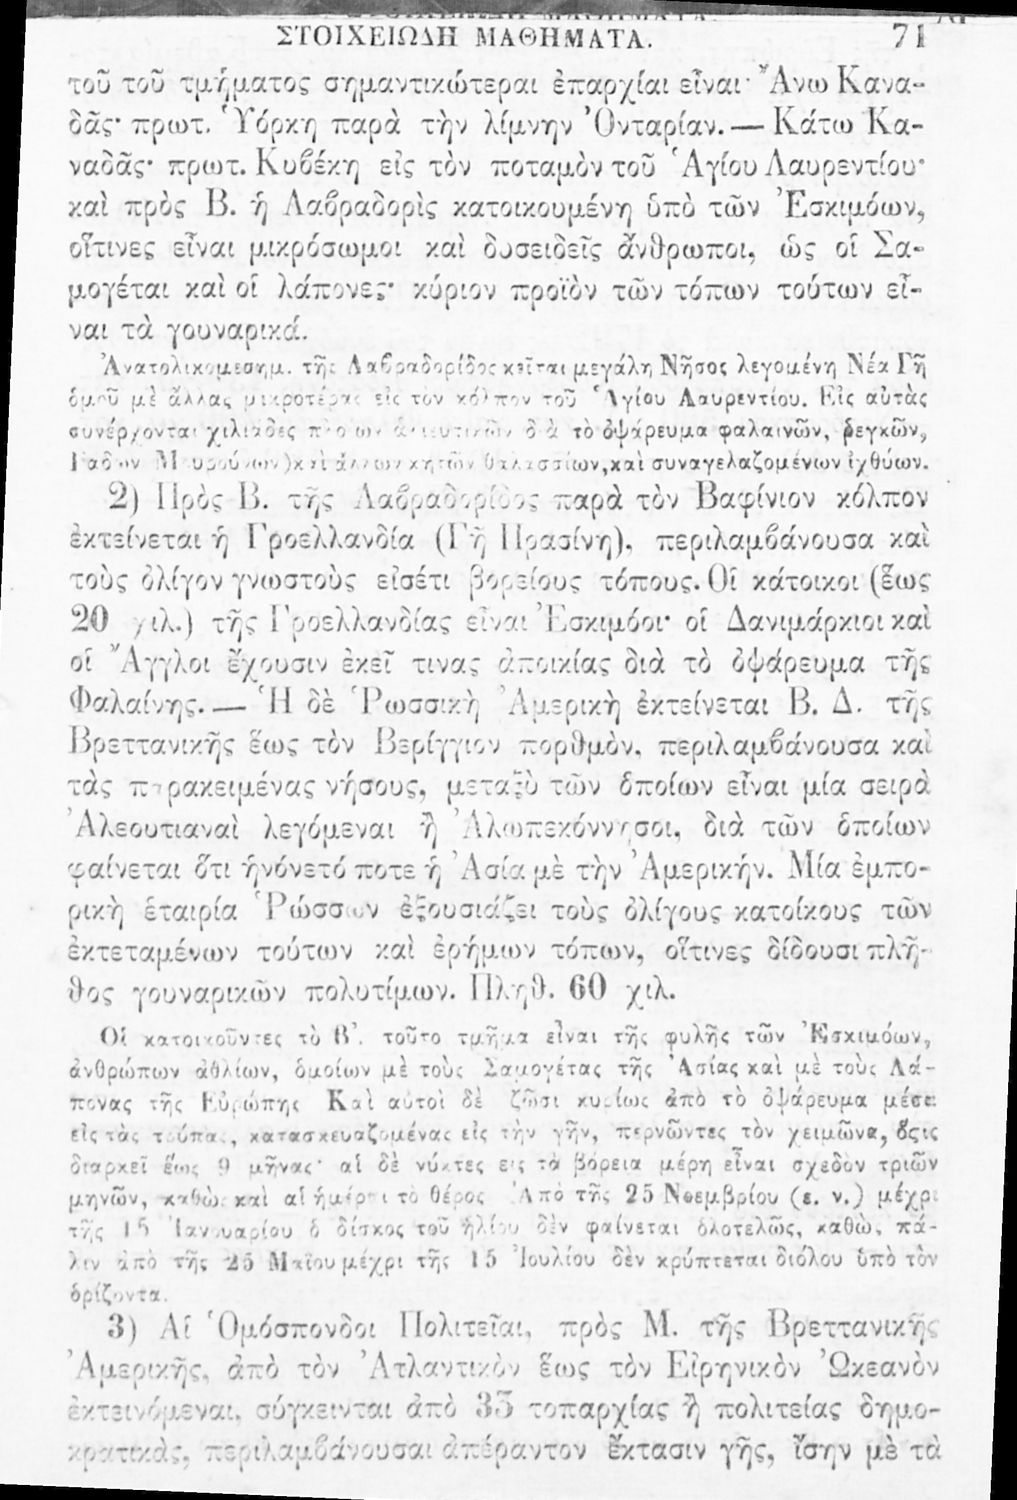 ΣΤΟΙΧΕΙΩΔΗ ΜΑΘΗΜΑΤΑ. 71
τοῦ τοῦ τμήματος σημαντικώτεραι ἐπαρχίαι εἶναι· Ἄνω Κανα-
δᾶς· πρωτ. Ὑόρκη παρὰ τὴν λίμνην Ὀνταρίαν. — Κάτω Κα-
ναδᾶς· πρωτ. Κυβέκη εἰς τὸν ποταμὸν τοῦ Ἁγίου Λαυρεντίου·
καὶ πρὸς Β. ἡ Λαβραδορὶς κατοικουμένη ὑπὸ τῶν Ἐσκιμόων,
οἵτινες εἶναι μικρόσωμοι καὶ δυσειδεῖς ἄνθρωποι, ὡς οἱ Σα-
μογέται καὶ οἱ λάπονες· κύριον προϊὸν τῶν τόπων τούτων εἶ-
ναι τὰ γουναρικά.
Ἀνατολικομεσημ. τῆς Λαβραδορίδος κεῖται μεγάλη Νῆσος λεγομένη Νέα Γῆ
ὁμοῦ μὲ ἄλλας μικροτέρας εἰς τὸν κόλπον τοῦ Ἁγίου Λαυρεντίου. Εἰς αὐτὰς
συνέρχονται χιλιάδες πλοίων ἁλιευτικῶν διὰ τὸ ὀψάρευμα φαλαινῶν, ῥεγκῶν,
Γάδων Μουρούνων) καὶ ἄλλων κητῶν θαλασσίων, καὶ συναγελαζομένων ἰχθύων.
2) Πρὸς Β. τῆς Λαβραδορίδος παρὰ τὸν Βαφίνιον κόλπον
ἐκτείνεται ἡ Γροελλανδία (Γῆ Πρασίνη), περιλαμβάνουσα καὶ
τοὺς ὀλίγον γνωστοὺς εἰσέτι βορείους τόπους. Οἱ κάτοικοι (ἕως
20 χιλ.) τῆς Γροελλανδίας εἶναι Ἐσκιμόοι· οἱ Δανιμάρκιοι καὶ
οἱ Ἄγγλοι ἔχουσιν ἐκεῖ τινας ἀποικίας διὰ τὸ ὀψάρευμα τῆς
Φαλαίνης. — Ἡ δὲ Ῥωσσικὴ Ἀμερικὴ ἐκτείνεται Β. Δ. τῆς
Βρεττανικῆς ἕως τὸν Βερίγγιον πορθμὸν, περιλαμβάνουσα καὶ
τὰς παρακειμένας νήσους, μεταξὺ τῶν ὁποίων εἶναι μία σειρὰ
Ἀλεουτιαναὶ λεγόμεναι ἢ Ἀλωπεκόννησοι, διὰ τῶν ὁποίων
φαίνεται ὅτι ἡνόνετό ποτε ἡ Ἀσία μὲ τὴν Ἀμερικήν. Μία ἐμπο-
ρικὴ ἑταιρία Ῥώσσων ἐξουσιάζει τοὺς ὀλίγους κατοίκους τῶν
ἐκτεταμένων τούτων καὶ ἐρήμων τόπων, οἵτινες δίδουσι πλῆ-
θος γουναρικῶν πολυτίμων. Πληθ. 60 χιλ.
Οἱ κατοικοῦντες τὸ Β'. τοῦτο τμῆμα εἶναι τῆς φυλῆς τῶν Ἐσκιμόων,
ἀνθρώπων ἀθλίων, ὁμοίων μὲ τοὺς Σαμογέτας τῆς Ἀσίας καὶ μὲ τοὺς Λά-
πονας τῆς Εὐρώπης Καὶ αὐτοὶ δὲ ζῶσι κυρίως ἀπὸ τὸ ὀψάρευμα μέσα
εἰς τὰς τρύπας, κατασκευαζομένας εἰς τὴν γῆν, περνῶντες τὸν χειμῶνα, ὅςις
διαρκεῖ ἕως 9 μῆνας· αἱ δὲ νύκτες εἰς τὰ βόρεια μέρη εἶναι σχεδὸν τριῶν
μηνῶν, καθὼς καὶ αἱ ἡμέραι τὸ θέρος Ἀπὸ τῆς 25 Νοεμβρίου (ε. ν.) μέχρι
τῆς 15 Ἰανουαρίου ὁ δίσκος τοῦ ἡλίου δὲν φαίνεται ὁλοτελῶς, καθὼς πά-
λιν ἀπὸ τῆς 25 Μαΐου μέχρι τῆς 15 Ἰουλίου δὲν κρύπτεται διόλου ὑπὸ τὸν
ὁρίζοντα.
3) Αἱ Ὁμόσπονδοι Πολιτεῖαι, πρὸς Μ. τῆς Βρεττανικῆς
Ἀμερικῆς, ἀπὸ τὸν Ἀτλαντικὸν ἕως τὸν Εἰρηνικὸν Ὠκεανὸν
ἐκτεινόμεναι, σύγκεινται ἀπὸ 33 τοπαρχίας ἢ πολιτείας δημο-
κρατικὰς, περιλαμβάνουσαι ἀπέραντον ἔκτασιν γῆς, ἴσην μὲ τὰ